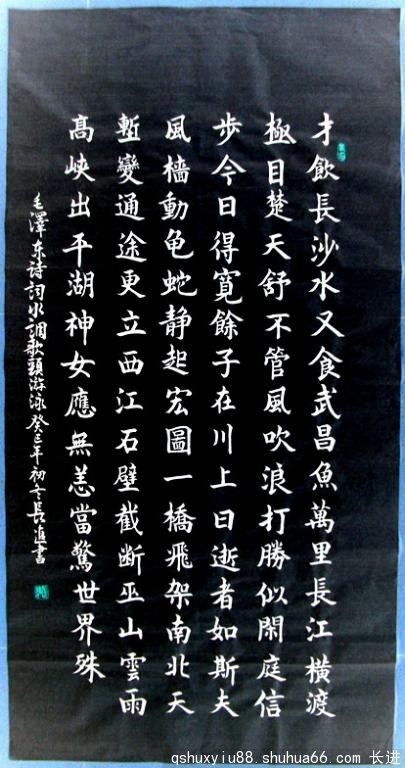 才飲長沙水又食武昌魚萬里長江橫渡
極目楚天舒不管風吹浪打勝似閑庭信
步今日得寬餘子在川上曰逝者如斯夫
風檣動龟蛇静起宏圖一橋飛架南北天
塹變通途更立西江石壁截断巫山雲雨
高峡出平湖神女應無恙當驚世界殊
毛澤东詩詞水調歌頭游泳癸巳年初冬長進書
qshuxyiu88.shuhua66.com 长进